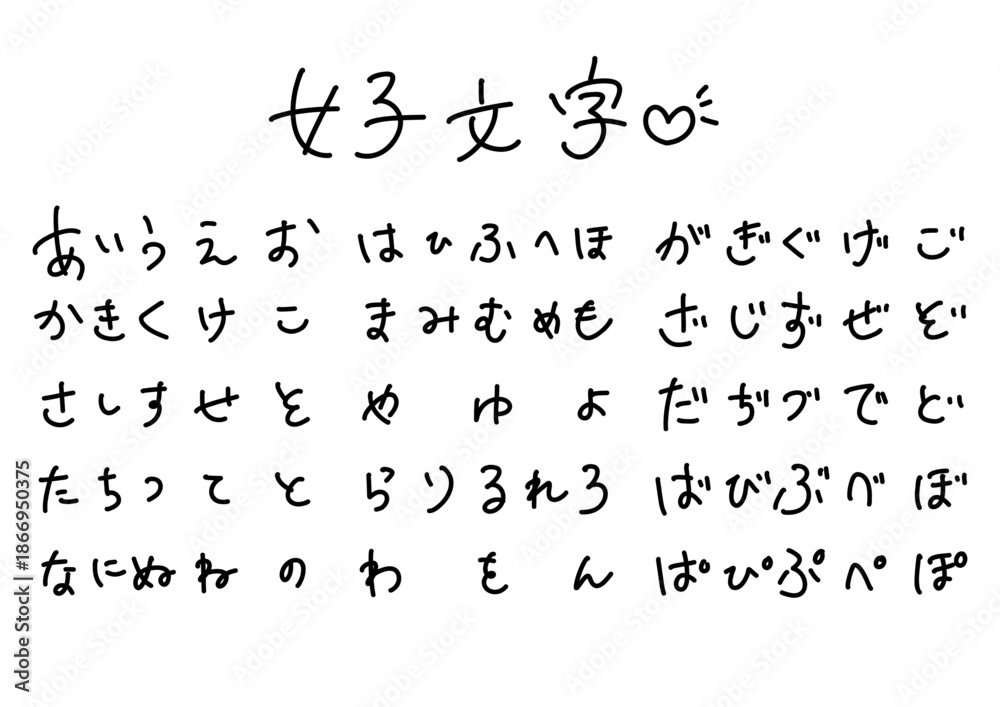 女子文字♡
あいうえお はひふへほ がぎぐげご
かきくけこ まみむめも ざじずぜぞ
さしすせそ や ゆ よ だぢづでど
たちつてと らりるれろ ばびぶべぼ
なにぬねの わ を ん ぱぴぷぺぽ
Adobe Stock | #1866950375